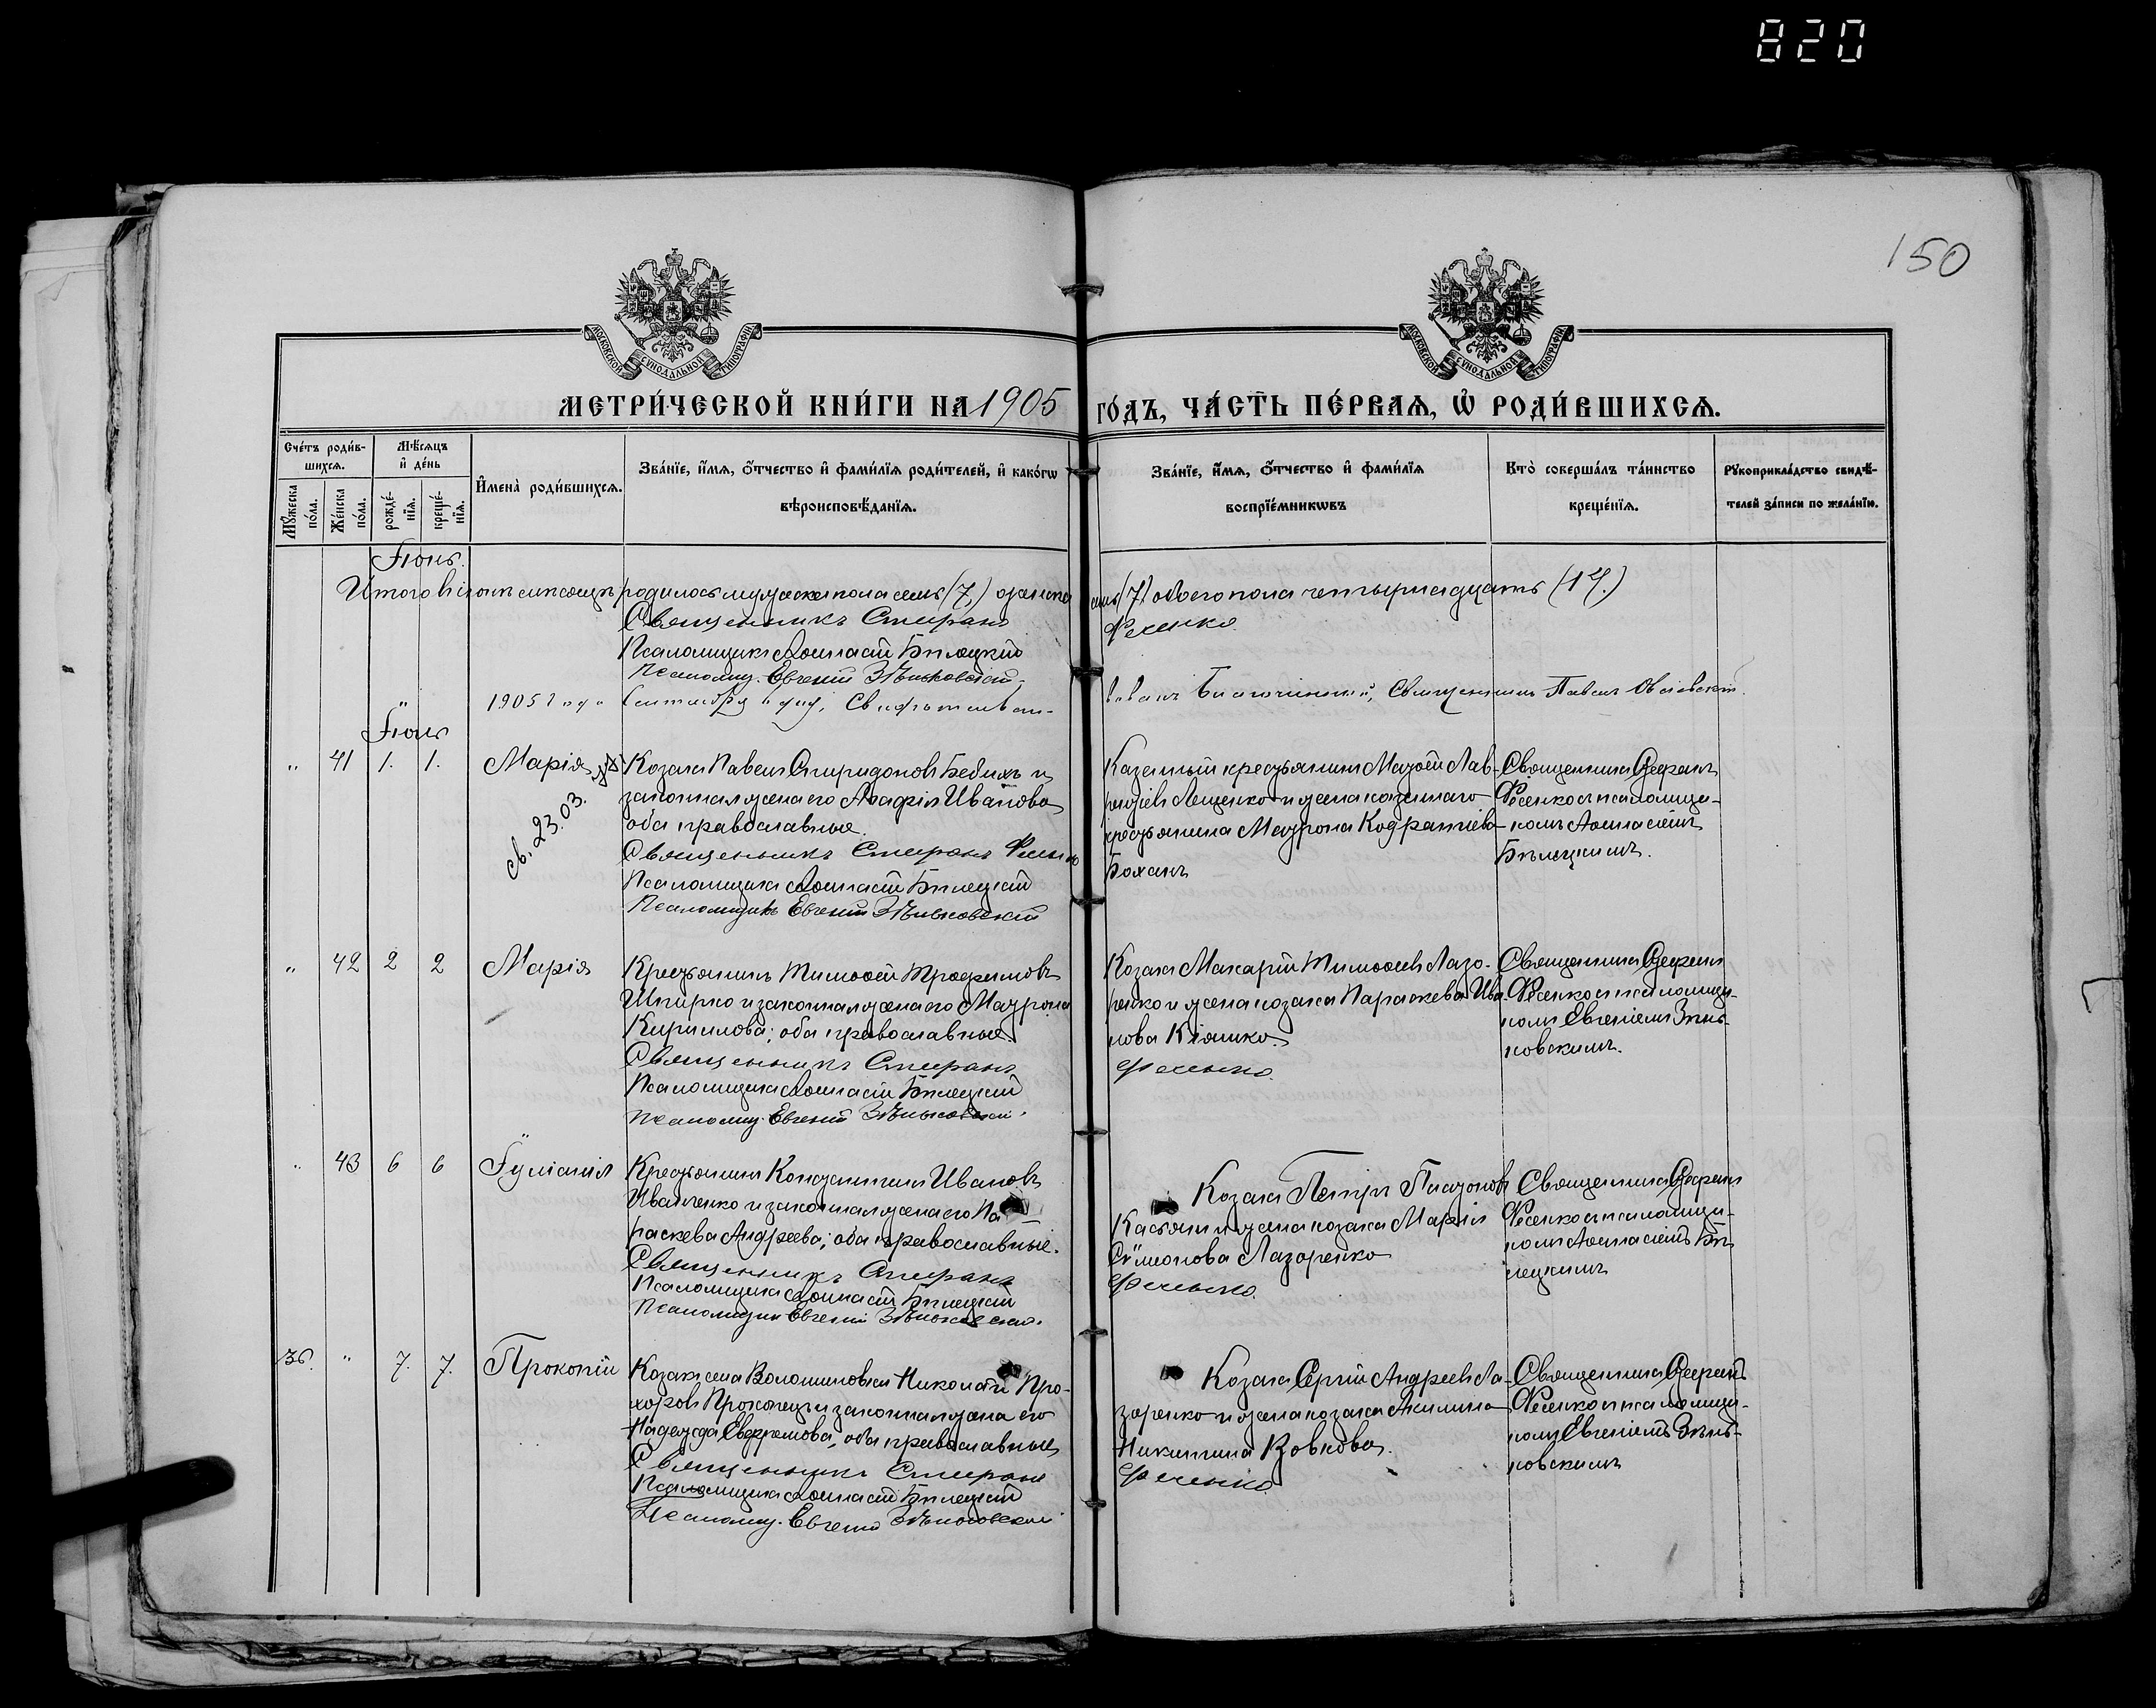 820
150
МОСКОВСКОЙ СѴНОДАЛЬНОЙ ТИПОГРАФІИ
МОСКОВСКОЙ СѴНОДАЛЬНОЙ ТИПОГРАФІИ
МЕТРИ́ЧЕСКОЙ КНИ́ГИ НА 1905 ГО́ДЪ, ЧА́СТЬ ПЕ́РВАЯ, Ѡ҆ РОДИ́ВШИХСЯ.
Сче́тъ роди́вшихся.
Му́жеска по́ла.
Же́нска по́ла.
Мѣ́сяцъ и҆ де́нь
рожде́нїя.
креще́нїя.
И҆мена̀ роди́вшихся.
Зва́нїе, и҆́мя, ѻ҆́тчество и҆ фами́лїя роди́телей, и҆ како́гѡ
вѣроисповѣ́данїя.
Зва́нїе, и҆́мя, ѻ҆́тчество и҆ фами́лїя
воспрїе́мникѡвъ
Кто̀ соверша́лъ та́инство
креще́нїя.
Рꙋкоприкла́дство свидѣ́-
телей за́писи по жела́нїю.
Іюнь.
Итого въ іюнѣ мѣсяцѣ родилось мужеска пола семь (7,) женска семь (7) обоего пола четырнадцать (14.)
Священникъ Стефанъ Фесенко
Псаломщикъ Бѣлецкій
Псаломщ. Евгеній Зѣньковскій
1905 года Сентября дня, Свидѣтельствовалъ Благочинный, Священникъ Павелъ
Іюль
" 41 1. 1. Марія
св. 23.03.
Козакъ Павелъ Спиридоновъ Бебихъ и
законная жена его Агафія Иванова
оба православные.
Священникъ Стефанъ Фесенко
Псаломщикъ Бѣлецкій
Псаломщикъ Евгеній Зѣньковскій
Казенный крестьянинъ Матѳей Лав-
рентіевъ Лещенко и жена казеннаго
крестьянина Маврона Кодратіева
Боханъ
Священникъ Стефанъ
Фесенко съ псаломщи-
комъ
Бѣлецкимъ.
" 42 2 2 Марія
Крестьянинъ Тимоѳей Трофимовъ
Шпирко и законная жена его Маврона
Кириллова; оба православные.
Священникъ Стефанъ
Псаломщикъ Бѣлецкій
Псаломщ. Евгеній Зѣньковскій.
Козакъ Макарій Тимоѳеевъ Лазо-
ренко и жена козака Параскева Ива-
нова Кіяшко.
Фесенко.
Священникъ Стефанъ
Фесенко съ псаломщи-
комъ Евгеніемъ Зѣнь-
ковскимъ.
" 43 6 6 Іуліанія
Крестьянинъ Константинъ Ивановъ
Иванченко и законная жена его Па-
раскева Андреева; оба православные.
Священникъ Стефанъ
Псаломщикъ Бѣлецкій
Псаломщикъ Евгеній Зѣньковскій.
Козакъ Петръ Платоновъ
Касьянъ и жена козака Марія
Сѵмеонова Лазоренко
Фесенко.
Священникъ Стефанъ
Фесенко съ псаломщи-
комъ Бѣ-
лецкимъ
36. " 7. 7. Прокопій
Козакъ села Волошиновки Николай Про-
хоровъ Прокопецъ и законная жена его
Надежда Евфремова, оба православные
Священникъ Стефанъ
Псаломщикъ Бѣлецкій
Псаломщ. Евгеній Зѣньковскій
Козакъ Сергій Андреевъ Ла-
зоренко и жена козака Акилина
Никитина Вовкова.
Фесенко
Священникъ Стефанъ
Фесенко съ псаломщи-
комъ Евгеніемъ Зѣнь-
ковскимъ